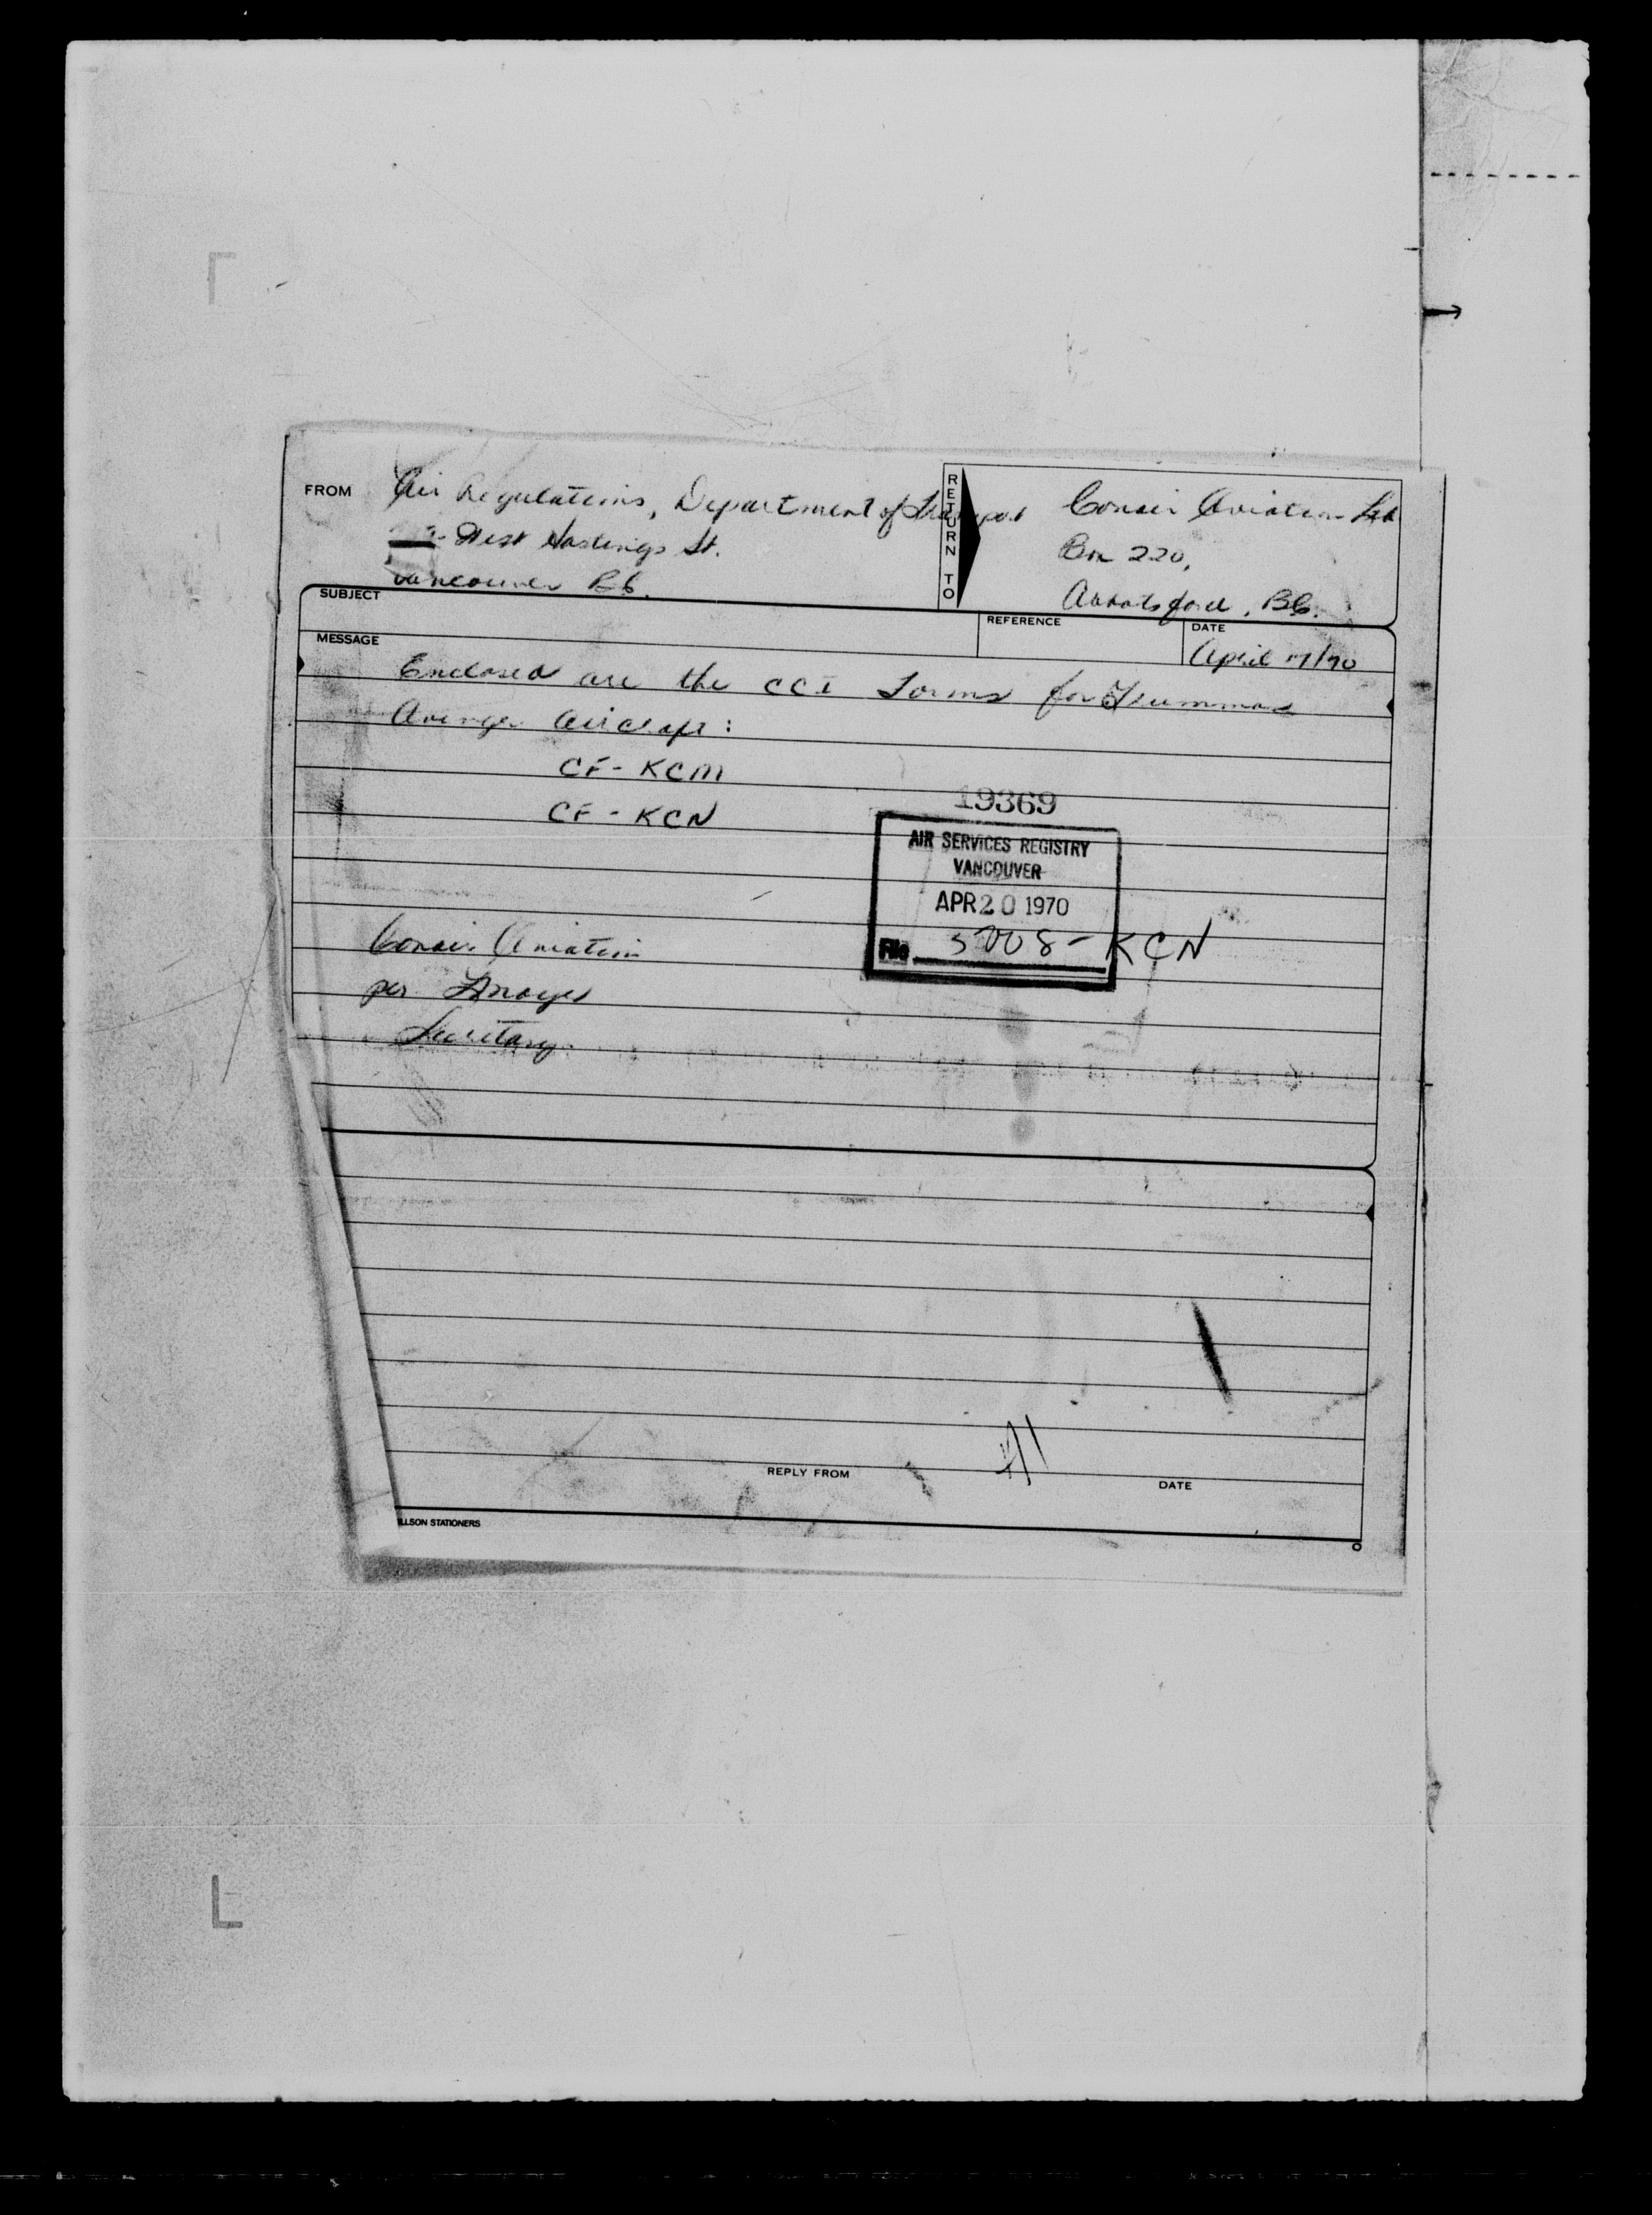 FROM Air Regulations, Department of Transport
West Hastings St.
Vancouver BC.
RETURN TO
Conair Aviation Ltd
Box 220,
Abbotsford, BC.
SUBJECT
REFERENCE
DATE
April 17/70
MESSAGE
Enclosed are the CCI Forms for Grumman
Avenger Aircraft:
CF-KCM
CF-KCN
19369
AIR SERVICES REGISTRY
VANCOUVER
APR 20 1970
File 5008-KCN
Conair Aviation
per
Secretary.
REPLY FROM
DATE
ILLSON STATIONERS